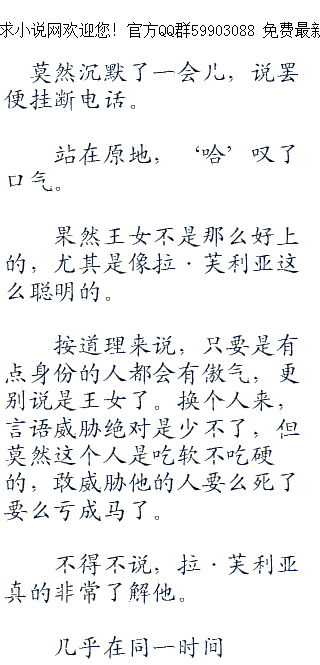 求小说网欢迎您！官方QQ群59903088 免费最新
莫然沉默了一会儿，说罢
便挂断电话。
站在原地，‘哈’叹了
口气。
果然王女不是那么好上
的，尤其是像拉·芙利亚这
么聪明的。
按道理来说，只要是有
点身份的人都会有傲气，更
别说是王女了。换个人来，
言语威胁绝对是少不了，但
莫然这个人是吃软不吃硬
的，敢威胁他的人要么死了
要么亏成马了。
不得不说，拉·芙利亚
真的非常了解他。
几乎在同一时间